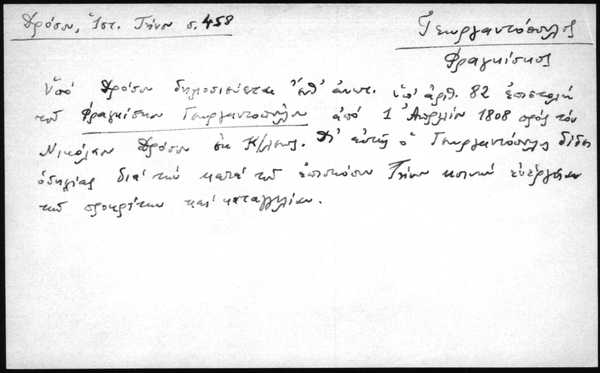 Δρόσου, Ἱστ. Τήνου σ. 458
Γεωργαντόπουλος
Φραγκίσκος
Ὑπό Δρόσου δημοσιεύεται ἔνθ' ἀνωτ. ὑπ' ἀριθ. 82 ἐπιστολή
τοῦ Φραγκίσκου Γεωργαντοπούλου ἀπό 1 Ἀπριλίου 1808 πρός τόν
Νικόλαον Δρόσον εἰς Κ/πολιν. Δι' αὐτῆς ὁ Γεωργαντόπουλος δίδει
ὁδηγίας διά τήν κατά τοῦ ἐπισκόπου Τήνου κοινήν ἐνέργειαν
τῶν προκρίτων καί καταγγελίαν.